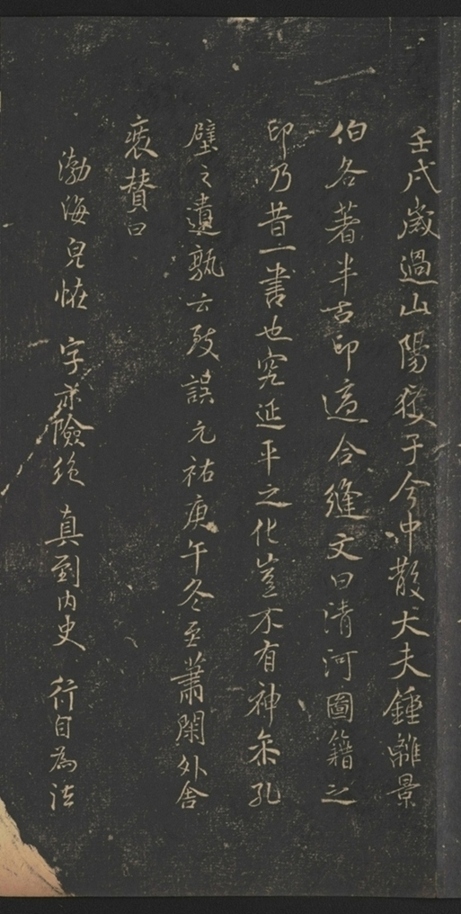 壬戌歲過山陽獲于今中散大夫鍾離景
伯各著半古印適合縫文曰清河圖籍之
印乃昔一書也究延平之化豈不有神尒孔
壁之遺孰云致誤元祐庚午冬至蕭閑外舍
褒贊曰
渤海兒 字亦險絕 真到內史 行自為法